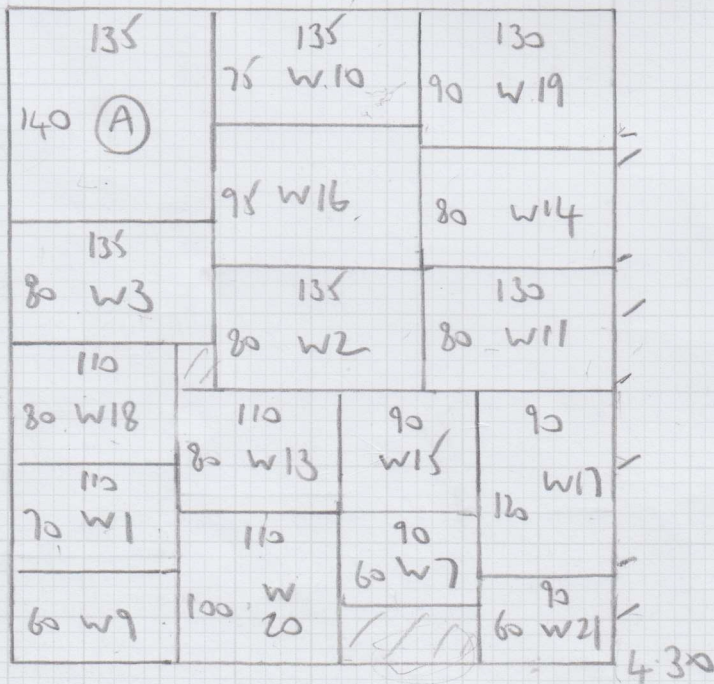 135
140 A
135
75 W.10
130
90 W.19
95 W16
80 W14
135
80 W3
135
80 W2
130
80 W11
110
80 W18
110
80 W13
90
W15
90
120 W17
110
70 W1
110
100 W
20
90
60 W7
60 W9
90
60 W21
4.30